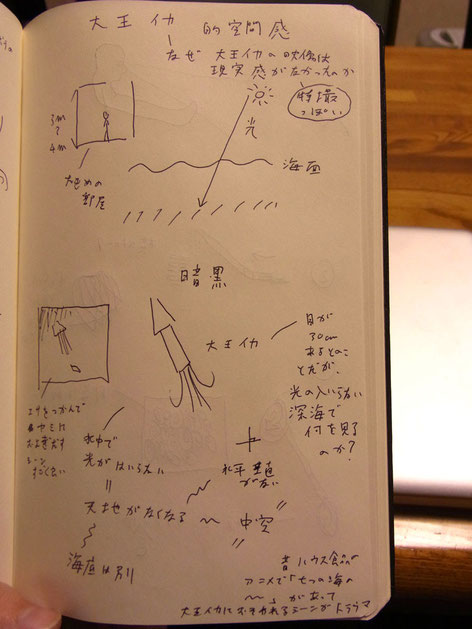 大王イカ 的空間感
なぜ 大王イカの映像は
現実感がなかったのか
特撮
っぽい
3m
〜
4m
光
大きめの
部屋
海面
暗黒
大王イカ
目が
30cm
あるとのこ
とだが、
光の入いらない
深海で
何を見る
のか?
エサをつかんで
およぎだす
シーン
すごく良い
水中で
光がはいらない
||
天地がなくなる
〜
海底は別
水平垂直
がない
〃
中空
〃
昔ハウス食品の
アニメで「七つの海の
〜」があって
大王イカにおそわれるシーンがトラウマ